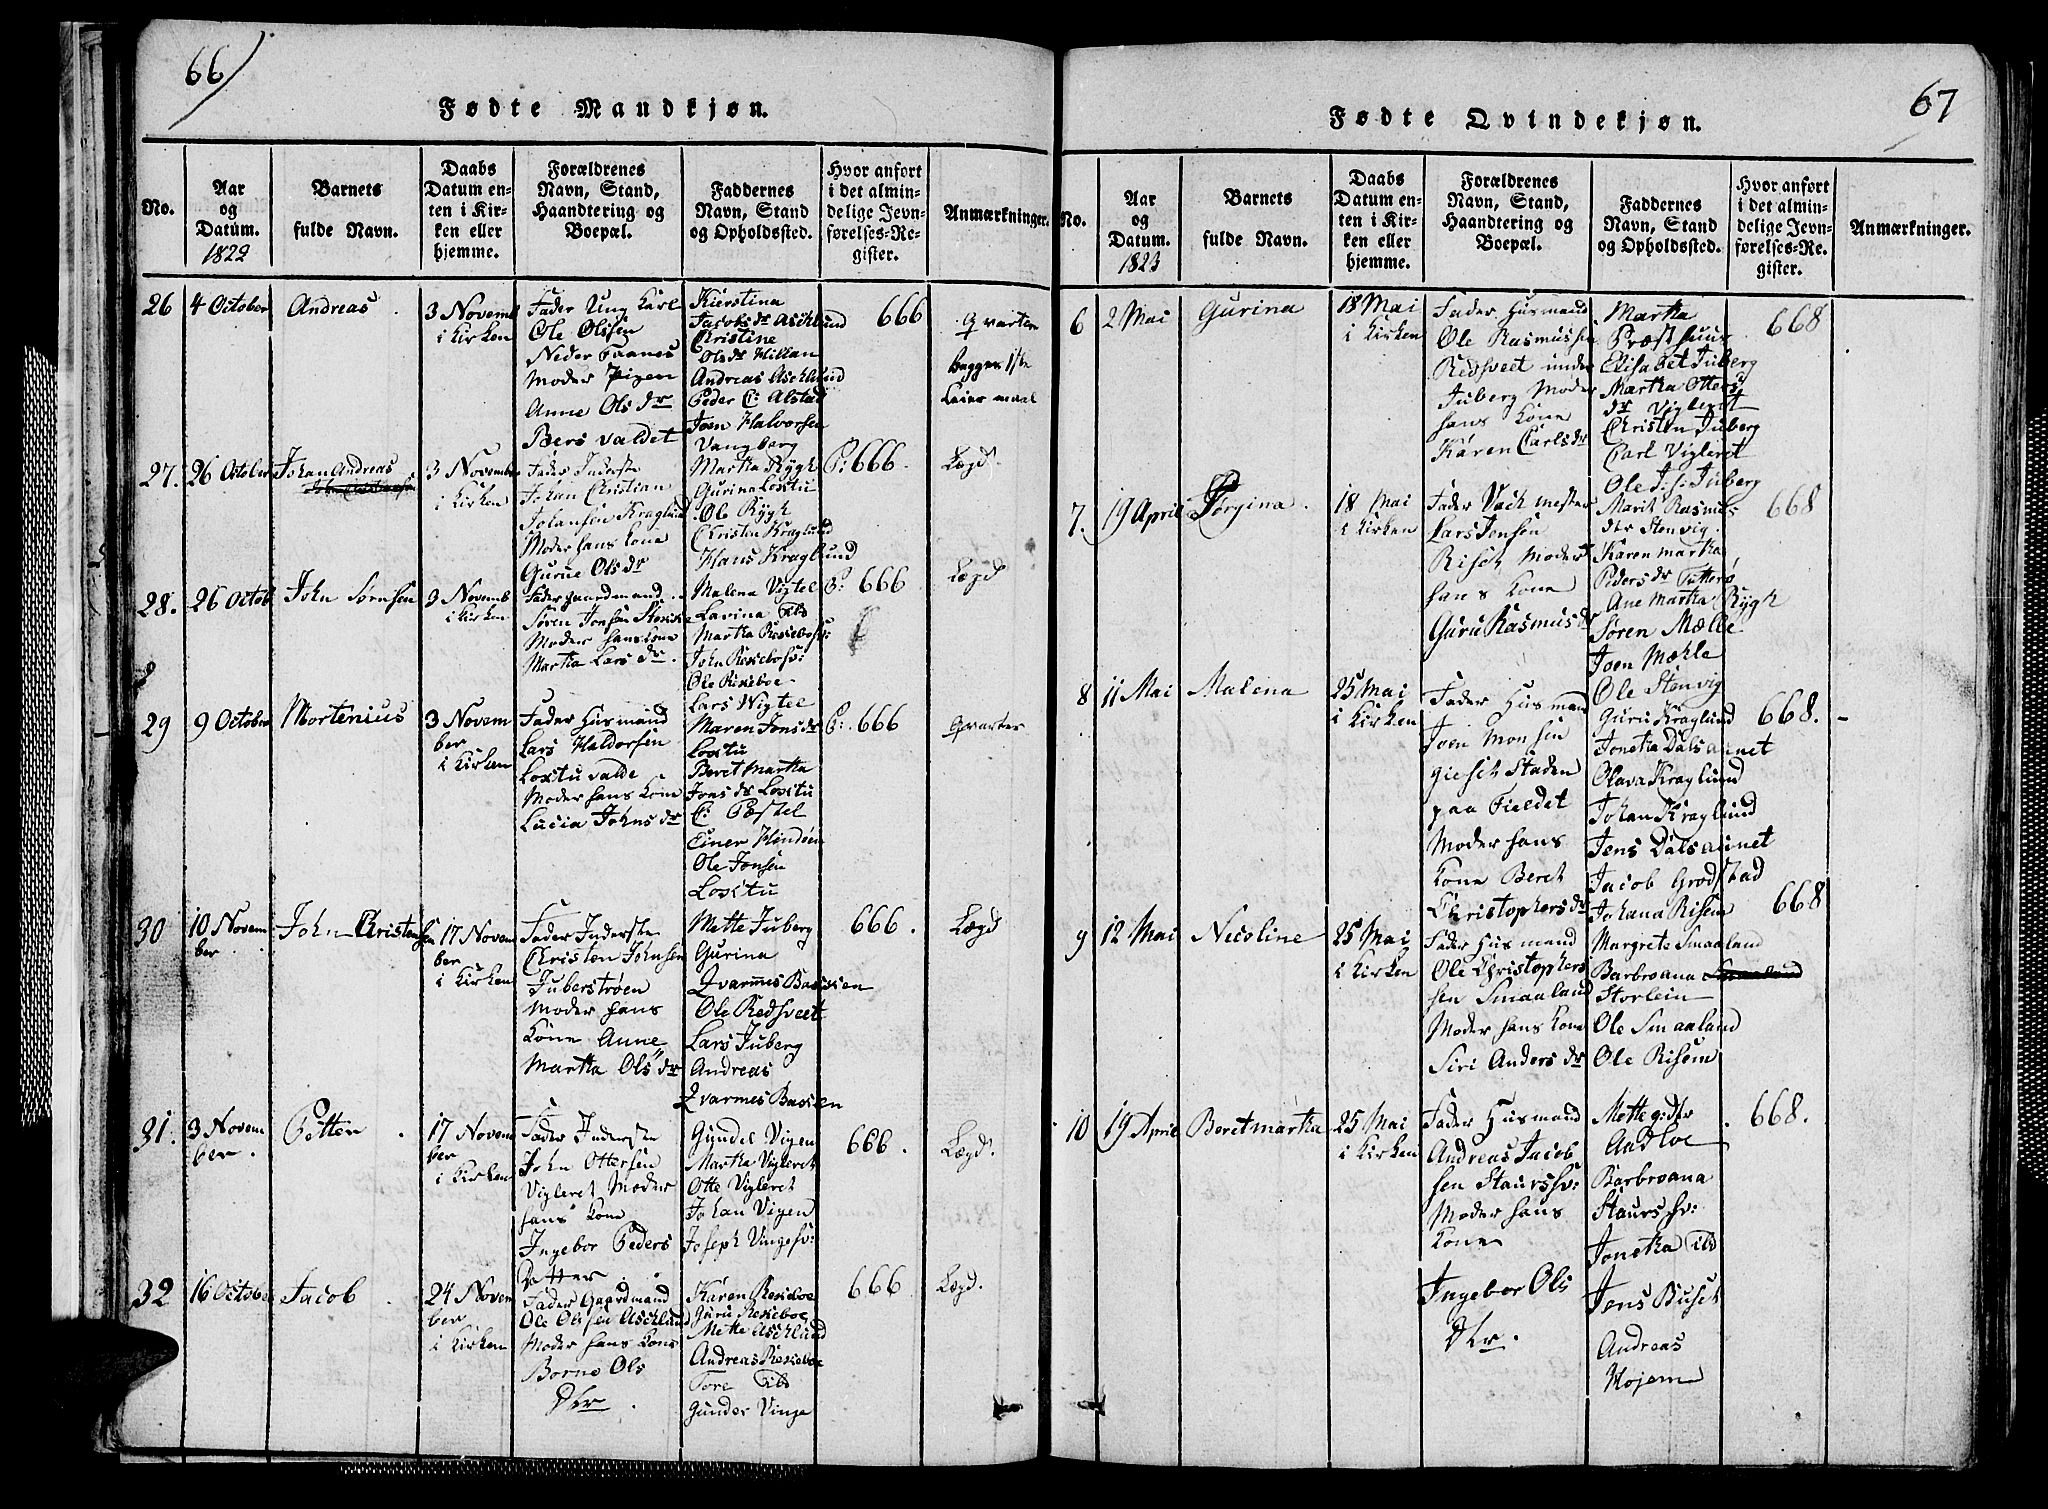 66)
Fødte Mandkjøn.
No.
Aar
og
Datum.
1822
Barnets
fulde Navn.
Daabs
Datum en-
ten i Kir-
ken eller
hjemme.
Forældrenes
Navn, Stand,
Haandtering og
Boepæl.
Faddernes
Navn, Stand
og Opholdssted.
Hvor anført
i det almin-
delige Jevn-
førelses-Re-
gister.
Anmærkninger.
26
4 October
Andreas
3 Novemb
i Kirken
Fader Ung Karl
Ole Olsen
Neder Faanes
Moder Pigen
Anne Ols dr
Bersvaldet
Kierstina
Jacobs dr Aschlund
Christine
Ols dr Hillan
Andreas Aschlund
Peder C: Alstad
Joen Halvorsen
Vangberg
666
Qvarten
begges 1ste
Leiermaal
27.
26 October
Johan Andreas
3 Novembe
i Kirken
Fader Inderste
Johan Christian
Johansen Kraglund
Moder hans Kone
Gurue Ols dr
Martha Rygh
Gurina Loxtu
Ole Rygh
Christen Kraglund
Hans Kraglund
C: 666.
Lægd.
28.
26 Octob
John Sørnsen
3 Novemb
i Kirken
Fader Gaardmand
Søren Jonsen
Moder hans Kone
Martha Lars dr.
Malena Vigtel
Lavina ibd
Martha
John
Ole Reseboe
Lars Wigtel
C: 666
Lægd
29
9 October
Mortenius
3 Novem
ber
i Kirken
Fader Husmand
Lars Haldorsen
Loxtuvalde
Moder hans Kone
Lucia Johns dr
Maren Jons dr
Loxtu
Beret Martha
Jons dr Loxtu
C: Pæstel
Einer Hindøen
Ole Jonsen
Loxtu
C: 666
Qvarter
30
10 Novem
ber
John Christensen
17 Novem
ber
i Kirken
Fader Inderste
Christen Johnsen
Juberstrøen
Moder hans
Kone Anne
Martha Ols dr
Mette Juberg
Gurina
Qvarmes Bassien
Ole Redsveet
Lars Juberg
Andreas
Qvarmes Bassien
666.
Lægd
31.
3 Novem
ber.
Petter
17 Novem
ber
i Kirken
Fader Inderste
John Ottersen
Vigleret Moder
hans Kone
Ingebor Peders
Datter
Gundel Vigen
Martha Vigleret
Otte Vigleret
Johan Vigen
Joseph Vingesv:
666.
Lægd.
32
16 October
Jacob
24 Novem
ber
i Kirken
Fader Gaardmand
Ole Olsen Aschlund
Moder hans Kone
Borne Ols
Dtr.
Karen Reseboe
Guru Reseboe
Mette Aschlund
Andreas Reseboe
Tore ibd
Gunder Vinge
666
Lægd.
67
Fødte Qvindekjøn.
No.
Aar
og
Datum.
1823
Barnets
fulde Navn.
Daabs
Datum en-
ten i Kir-
ken eller
hjemme.
Forældrenes
Navn, Stand,
Haandtering og
Boepæl.
Faddernes
Navn, Stand
og Opholdssted.
Hvor anført
i det almin-
delige Jevn-
førelses-Re-
gister.
Anmærkninger.
6
2 Mai
Gurina
18 Mai
i Kirken
Fader Husmand
Ole Rasmussen
Redsveet under
Juberg Moder
hans Kone
Karen Carls dr
Martha
Præsthuus
Elisabet Juberg
Martha Otters
dr Vigleret
Christen Juberg
Carl Vigleret
Ole J: Juberg
668
7.
19 April
Jørgina.
18 Mai
i Kirken
Fader Vachmester
Lars Jensen
Risch Moder
hans Kone
Guru Rasmus dr
Marit Rasmus
dtr Stenvig.
Karen Martha
Peders dr Tutterø
Ane Martha Rygh
Søren Mælle
Joen Mæhle
Ole Stenvig
668
8
11 Mai
Malena
25 Mai
i Kirken
Fader Husmand
Joen Monsen
Giesch Staden
paa Fieldet
Moder hans
Kone Beret
Christophers dr
Guru Kraglund
Jonetha Dalsaunet
Olava Kraglund
Johan Kraglund
Jens Dalsaunet
Jacob Grodstad
668.
9
12 Mai
Nicoline
25 Mai
i Kirken
Fader Husmand
Ole Christophers
sen Smaaland
Moder hans Kone
Siri Anders dr
Johana Risem
Margrete Smaaland
Barbroana Smaaland
Storlein
Ole Smaaland
Ole Risem
668
10
19 April
Beret Martha
25 Mai
i Kirken
Fader Husmand
Andreas Jacob
sen Staurssv:
Moder hans
Kone
Ingebor Ols
Dtr.
Mette
Aadloe
Barbroana
Staurssv:
Jonetha ibd
Jens Buset
Andreas
Mojem
668.